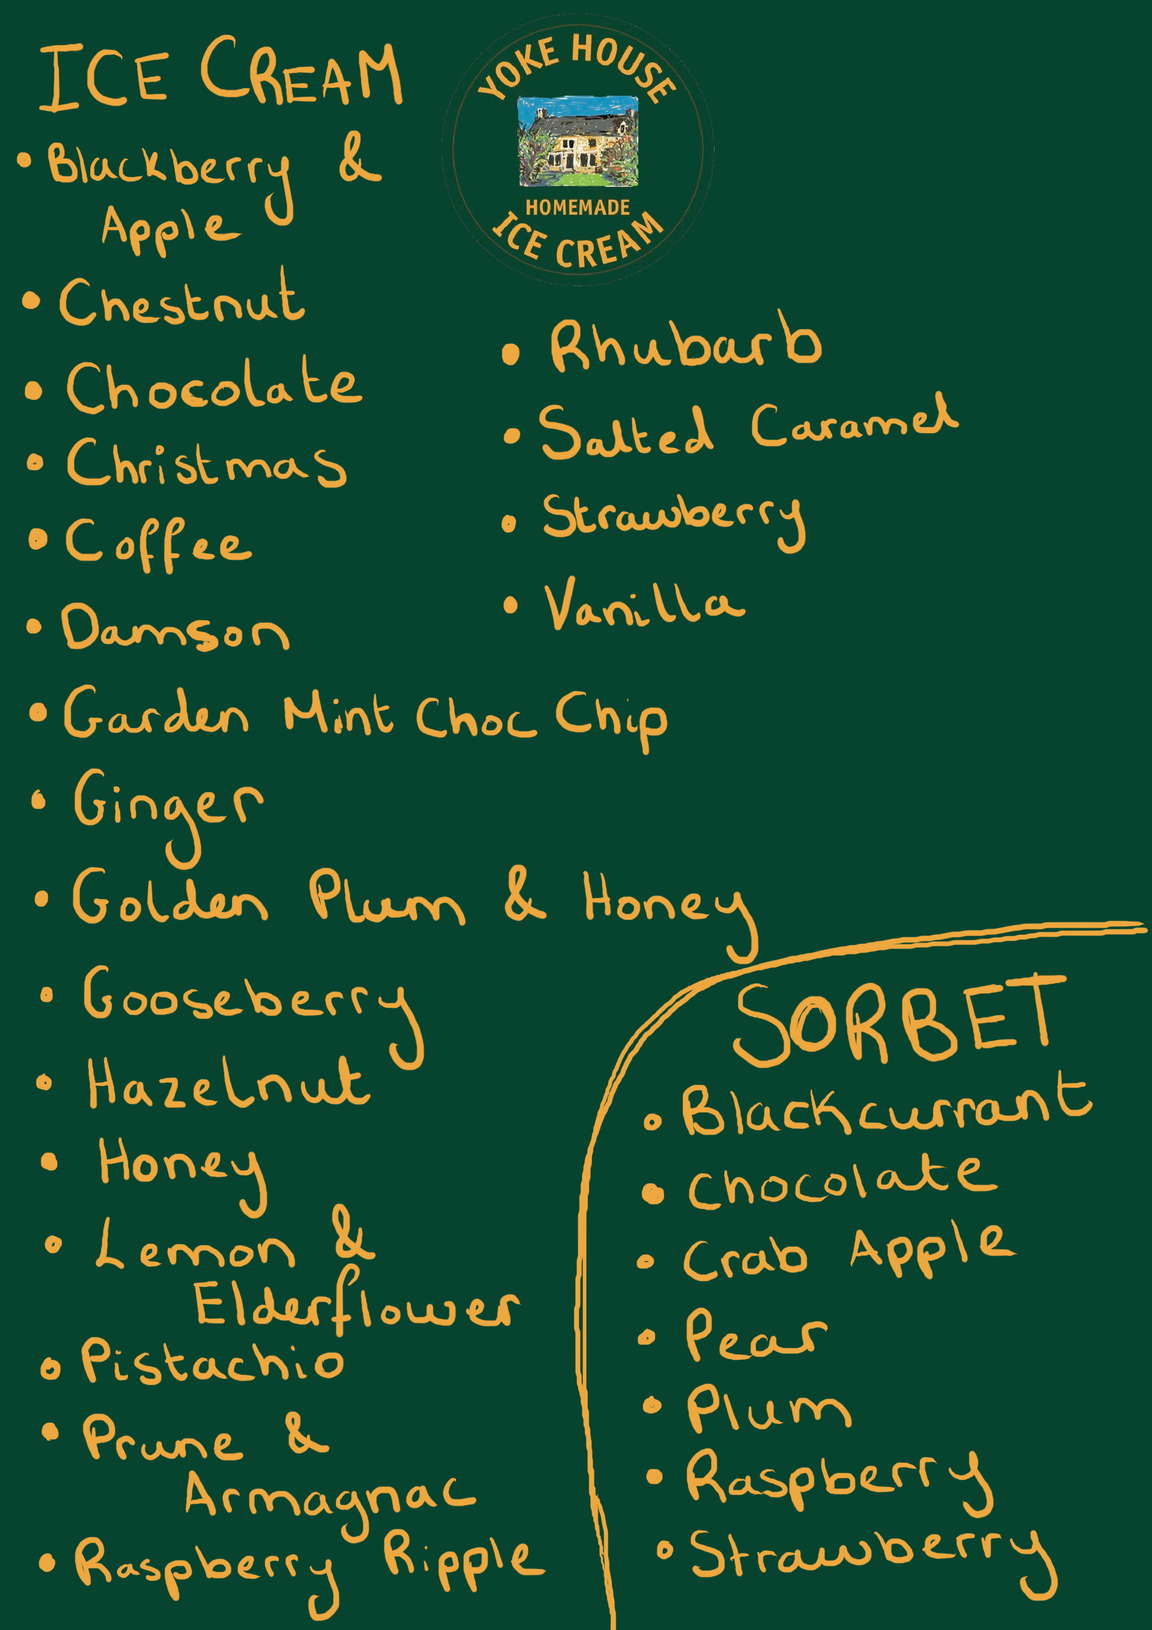 ICE CREAM
YOKE HOUSE
HOMEMADE
ICE CREAM
• Blackberry &
Apple
• Chestnut
• Chocolate
• Christmas
• Coffee
• Damson
• Garden Mint Choc Chip
• Ginger
• Golden Plum & Honey
• Gooseberry
• Hazelnut
• Honey
• Lemon &
Elderflower
• Pistachio
• Prune &
Armagnac
• Raspberry Ripple
• Rhubarb
• Salted Caramel
• Strawberry
• Vanilla
SORBET
• Blackcurrant
• Chocolate
• Crab Apple
• Pear
• Plum
• Raspberry
• Strawberry